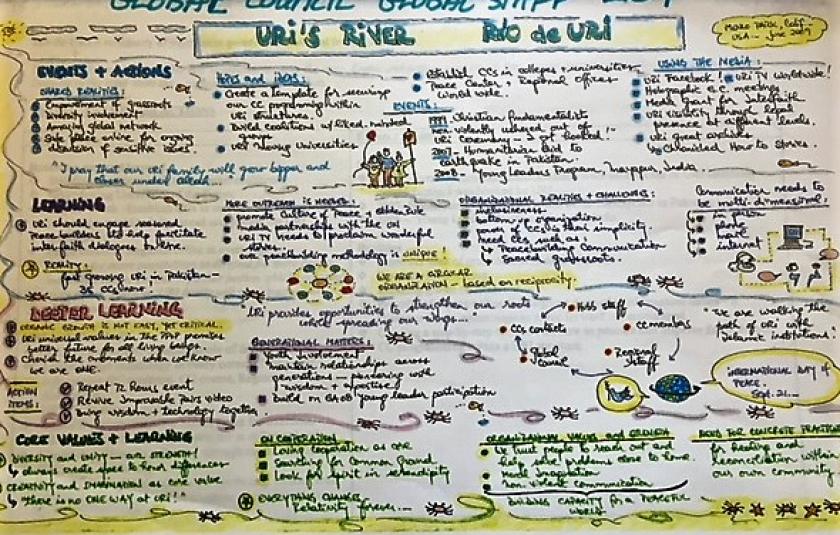 GLOBAL COUNCIL GLOBAL STAFF
URI'S RIVER RÍO de URI
Menlo Park, Calif.
USA... June 2009
EVENTS + ACTIONS
SHARED REALITIES:
Empowerment of grassroots
Diversity involvement
Amazing global network
Safe space online for ongoing
discussion of sensitive issues.
"I pray that our URI family will grow bigger and
HOPES and IDEAS:
Create a template for securing
our CC programming within
URI structures.
Build coalitions w/ liked-minded
groups
URI among universities
Establish CCs in colleges + universities
Peace Center + Regional Offices
World wide.
EVENTS:
Christian fundamentalists
non-violently ushered out of
URI ceremony "We be hooked!"
Humanitarian Aid to
Earthquake in Pakistan.
2008 - Young Leaders Program, India.
USING THE MEDIA:
URI Facebook! URI TV Worldwide!
Holographic G.C. meetings
Media Grant for Interfaith
URI visibility through
presence at different levels.
URI great archives
Chronicled How to Stories.
LEARNING
URI should engage seasoned
peace builders to help facilitate
interfaith dialogues online.
REALITY:
fast growing URI in Pakistan -
35 CCs now!
MORE OUTREACH IS NEEDED:
promote Culture of Peace +
media partnerships with the UN
URI TV needs to proclaim wonderful
stories.
our peacebuilding methodology is unique!
WE ARE A CIRCULAR
ORGANIZATION - based on reciprocity.
ORGANIZATIONAL REALITIES + CHALLENGES:
inclusiveness
bottom up organization
power of CCs is their simplicity
need CCs such as:
Peacebuilding Communication
Sacred grassroots.
Communication needs to
be multi-dimensional.
in person
phone
internet
DEEPER LEARNING
ORGANIC GROWTH IS NOT EASY, YET CRITICAL.
URI universal values in the PPP promises
better future of living beings
Cherish the moments when we know
we are ONE.
ACTION
ITEMS:
Repeat 72 Hours event
Revive Improvable Pairs video
Bring wisdom + technology together.
URI provides opportunities to strengthen our roots
while spreading our wings...
GENERATIONAL MATTERS:
Youth Involvement
maintain relationships across
generations - partnering with
wisdom + expertise
build on young leader participation
Hub staff
CCs contacts
CC members
Global
Council
Regional
Staff
"We are walking the
path of URI with
Islamic institutions.
INTERNATIONAL DAY of
PEACE.
Sept. 21...
CORE VALUES + LEARNING
DIVERSITY and UNITY - our STRENGTH!
always create space to honor differences
CREATIVITY and IMAGINATION as core value
"There is no ONE WAY at URI!"
ON COOPERATION
Living cooperation as one
Searching for Common Ground
Look for Spirit in serendipity
EVERYTHING CHANGES
Relativity forever...
ORGANIZATIONAL VALUES and GROWTH
We trust people to reach out and
help solve problems close to home.
Youth Inspiration
Non-violent communication
BUILDING CAPACITY for a PEACEFUL
WORLD
NEED FOR CONCRETE
for healing and
reconciliation within
our own community